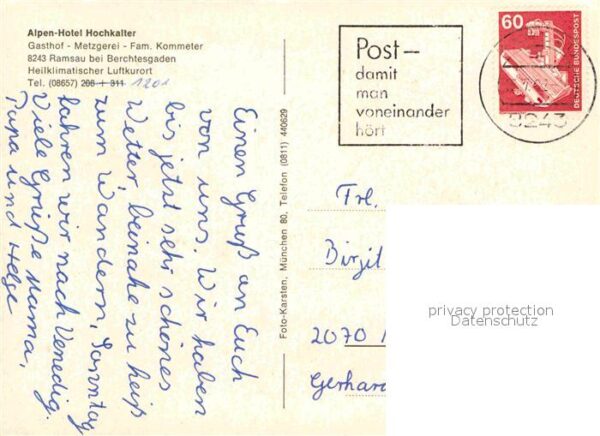 Alpen-Hotel Hochkalter
Gasthof - Metzgerei - Fam. Kommeter
8243 Ramsau bei Berchtesgaden
Heilklimatischer Luftkurort
Tel. (08657) 206 + 311 1201
Einen Gruß an Euch
von uns. Wir haben
bis jetzt sehr schönes
Wetter, beinahe zu heiß
zum Wandern, Sonntag
fahren wir nach Venedig.
Viele Grüße Mama,
Papa und Helge
Foto-Karsten, München 80, Telefon (0811) 440629
Post—
damit
man
voneinander
hört
60
DEUTSCHE BUNDESPOST
8243
Frl.
Birgit
2070
Gerhard
privacy protection
Datenschutz